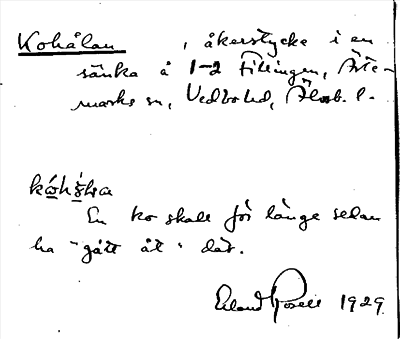 Kohålan, åkerstycke i en
sänka å 1-2 Fillingen, Öste-
marks sn, Vedbo hd, Älvsb. l.
En ko skall för länge sedan
ha "gått åt" där.
Erland Rosell 1929.